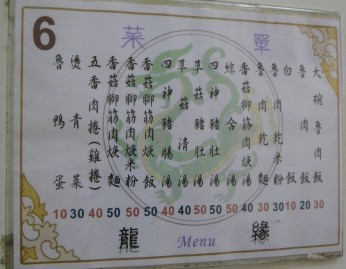 6
菜單
大碗魯肉飯
魯肉飯
白飯
魯肉乾米粉
魯肉乾麵
香菇腳筋肉焿湯
綜合湯
四神豬肚湯
草菇豬肚湯
草菇清湯
四神豬腸湯
香菇腳筋肉焿飯
香菇腳筋肉焿米粉
香菇腳筋肉焿麵
五香肉捲(雞捲)
燙青菜
魯鴨蛋
10 30 40 50 50 50 40 40 50 50 50 40 30 30 10 20 30
龍 Menu 緣